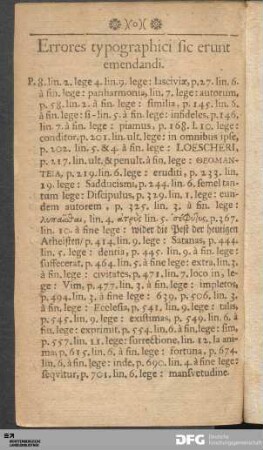 )(o)(
Errores typographici sic erunt
emendandi.
P. 8. lin. 2. lege 4. lin. 9. lege: lasciviæ, p. 27. lin. 6.
à fin. lege: panharmonia, lin. 7. lege: autorum,
p. 58. lin. 2. à fin. lege: similia, p. 145. lin. 6.
à fin. lege: si-lin. 5. à fin. lege: infideles, p. 146,
lin. 7. à fin. lege: piamus, p. 168. l. 10. lege:
conditor, p. 201. lin. ult. lege: in omnibus ipse,
p. 202. lin. 5. & 4. à fin. lege: LOESCHERI,
p. 217. lin. ult. & penult. à fin. lege: ΘΕΟΜΑΝ-
ΤΕΙΑ, p. 219. lin. 6. lege: eruditi, p. 233. lin.
19. lege: Sadducismi, p. 244. lin. 6. semel tan-
tum lege: Discipulus, p. 319. lin. 1. lege: eun-
dem autorem, p. 325. lin. 3. à fin. lege:
lin. 4. lin. 5. p. 367.
lin. 10. à fine lege: wider die Pest der heutigen
Atheisten, p. 414. lin. 9. lege: Satanas, p. 444.
lin. 5. lege: dentis, p. 445. lin. 9. à fin. lege:
suffecerat, p. 464. lin. 5. à fine lege: extra, lin. 3.
à fin. lege: civitates, p. 471, lin. 7. loco in, le-
ge: Vim, p. 477. lin. 3. à fin. lege: impletor,
p. 494. lin. 3. à fine lege: 639, p. 506. lin. 3.
à fin. lege: Ecclesia, p. 541. lin. 9. lege: talis,
p. 545. lin. 9. lege: existimas, p. 549. lin. 6. à
fin. lege: exprimit, p. 554. lin. 6. à fin. lege: sim,
p. 557. lin. 11. lege: correctione, lin. 12. la ani-
ma; p. 615. lin. 6. à fin. lege: fortuna, p. 674.
lin. 6. à fin. lege: inde, p. 690. lin. 4. à fine lege:
sequitur, p. 701. lin. 6. lege: mansvetudine.
DFG Deutsche
Forschungsgemeinschaft